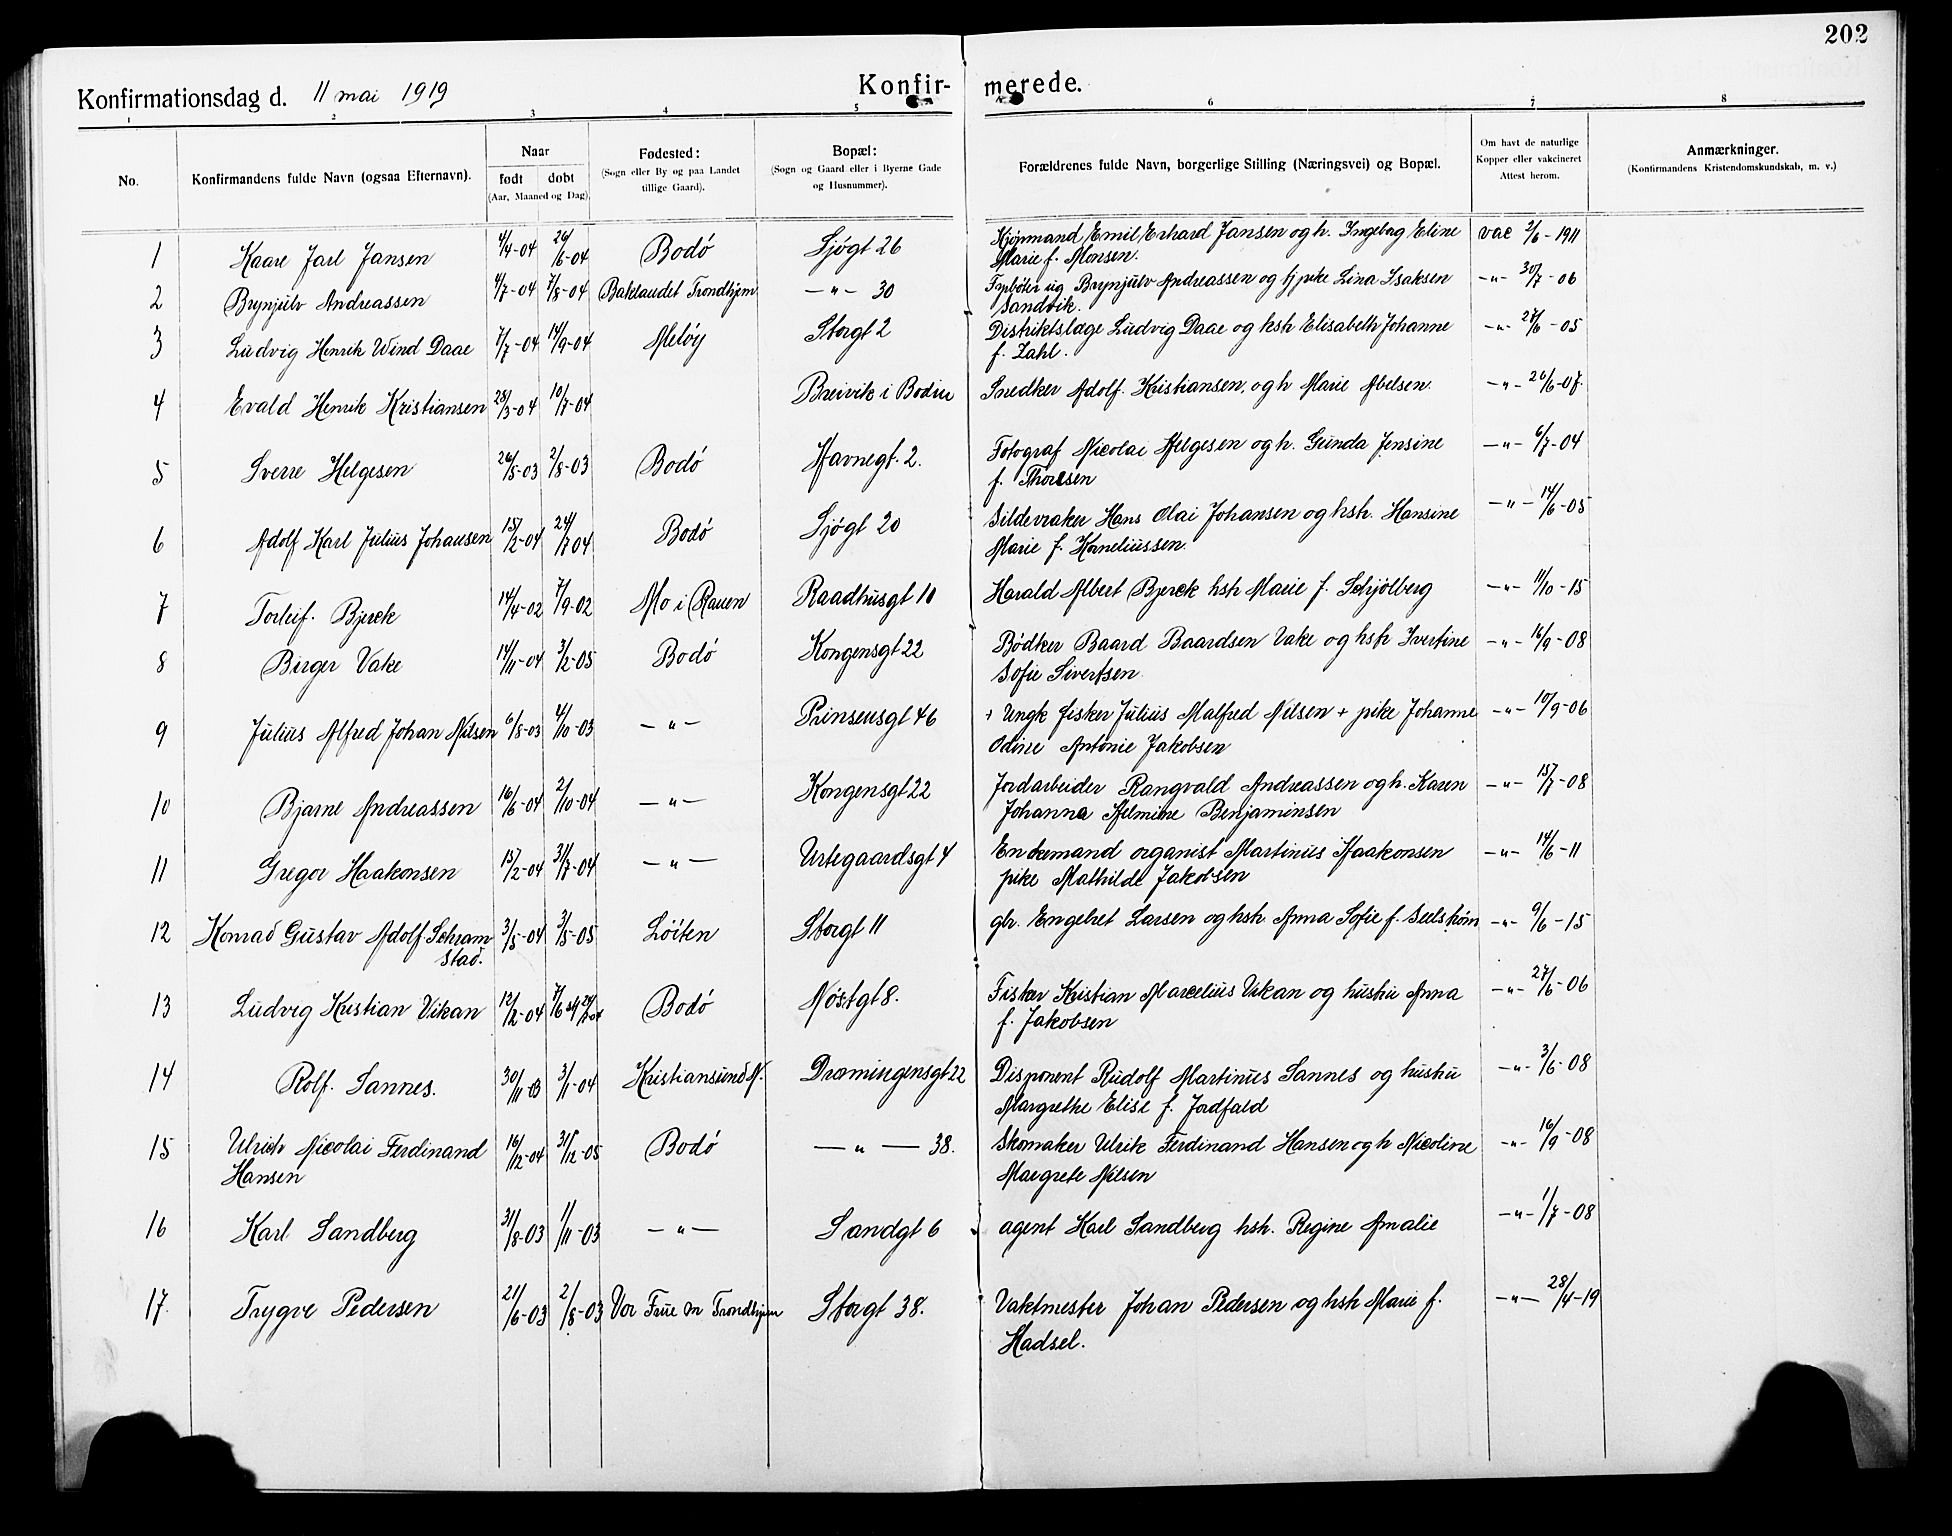 202
Konfirmationsdag d. 11 mai 1919
Konfir-
merede.
1 2 3 4 5 6 7 8
No.
Konfirmandens fulde Navn (ogsaa Efternavn).
Naar
født døbt
(Aar, Maaned og Dag).
Fødested:
(Sogn eller By og paa Landet
tillige Gaard).
Bopæl:
(Sogn og Gaard eller i Byerne Gade
og Husnummer).
Forældrenes fulde Navn, borgerlige Stilling (Næringsvei) og Bopæl.
Om havt de naturlige
Kopper eller vakcineret
Attest herom.
Anmærkninger.
(Konfirmandens Kristendomskundskab, m. v.)
1 Kaare Jarl Jansen 4/4-04 26/6-04 Bodó Sjøgt 26 Kjøpmand Emil Erhard Jansen og h. Ingebog Eline vac 3/6-1911
Marie f. Monsen.
2 Brynjulv Andreassen 4/7-04 7/8-04 Baklandet Trondhjem —"— 30 Fyrbøter ug Brynjulv Andreassen og tj pike Lina Isaksen —"— 30/7-06
Sandvik.
3 Ludvig Henrik Wind Daae 7/7-04 14/9-04 Meløy Storgt 2 Distriktslæge Ludvig Daae og hsh Elisabeth Johanne —"— 27/6-05
f. Zahl.
4 Evald Henrik Kristiansen 28/3-04 10/7-04 Breivik i Bodin Snedker Adolf Kristiansen, og h Marie Abelsen. —"— 26/6-07.
5 Sverre Helgesen 26/5-03 2/8-03 Bodó Havnegt. 2. Fotograf Nicolai Helgesen og h. Gunda Jensine —"— 6/7-04
f. Thoresen
6 Adolf Karl Julius Johansen 15/2-04 24/7 04 Bodó Sjøgt 20 Sildevraker Hans Olai Johansen og hsh. Hansine —"— 14/6-05
Marie f. Korneliussen.
7 Torleif. Bjerck 14/4-02 7/9-02 Mo i Ranen Raadhusgt 10 Harald Albert Bjerck hsh Marie f. Schjølberg —"— 11/10-15
8 Birger Vake 14/11-04 3/2-05 Bodó Kongensgt 22 Bødker Baard Baardsen Vake og hsh Ivertine —"— 16/9-08
Sofie Sivertsen
9 Julius Alfred Johan Nilsen 6/8-03 4/10-03 —"— Prinsensgt 46 + Ungk fisker Julius Malfred Nilsen + pike Johanne —"— 10/9-06
Odine Antonie Jakobsen
10 Bjarne Andreassen 16/6-04 2/10-04 —"— Kongensgt 22 Jordarbeider Rangvald Andreassen og h. Karen —"— 15/7-08
Johanna Helmine Benjaminsen
11 Gregor Haakonsen 15/2-04 31/7-04 —"— Urtegaardsgt 4 Enkemand organist Martinus Haakonsen —"— 14/6-11
pike Mathilde Jakobsen
12 Konrad Gustav Adolf Schram 3/5-04 3/5-05 Løiten Storgt 11 gbr. Engebret Larsen og hsh Anna Sofie f. —"— 9/6-15
stad.
13 Ludvig Kristian Vikan 12/2-04 7/6 04 Bodó Nøstgt 8. Fisker Kristian Marcelius Vikan og hustru Anna —"— 27/6-06
f. Jakobsen
14 Rolf. Sannes. 30/11-03 3/1-04 Kristiansund N. Dronningensgt 22 Disponent Rudolf Martinus Sannes og hustru —"— 3/6-08
Margrethe Elise f. Jordfald
15 Ulrich Nicolai Ferdinand 16/12-04 31/12-05 Bodó —"— 38. Skomaker Ulrik Ferdinand Hansen og h Nicoline —"— 16/9-08
Hansen Margrete Nilsen
16 Karl Sandberg 31/8-03 1/11-03 —"— Sandgt 6 agent Karl Sandberg hsh. Regine Amalie —"— 1/7-08
17. Trygve Pedersen 21/6-03 2/8-03 Vor Frue Trondhjem Storgt 38. Vaktmester Johan Pedersen og hsh Marie f. —"— 28/4-19
Hadsel.